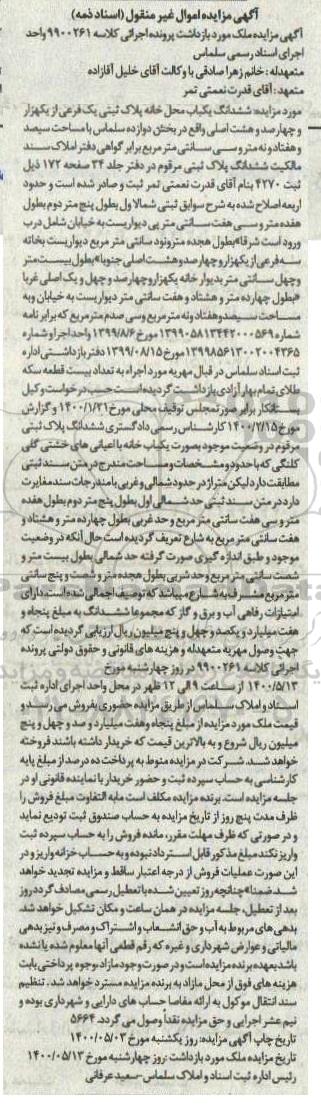 آگهی مزایده اموال غیر منقول (اسناد ذمه)
آگهی مزایده ملک مورد بازداشت پرونده اجرائی کلاسه ۹۹۰۰۲۶۱ واحد
اجرای اسناد رسمی سلماس
متعهدله: خانم زهرا صادقی با وکالت آقای خلیل آقازاده
متعهد: آقای قدرت نعمتی تمر
مورد مزایده: ششدانگ یکباب محل خانه پلاک ثبتی یک فرعی از یکهزار
و چهارصد و هشت اصلی واقع در بخش دوازده سلماس با مساحت سیصد
و هفتاد و نه متر و سی سانتی متر مربع برابر گواهی دفتر املاک سند
مالکیت ششدانگ پلاک ثبتی مرقوم در دفتر جلد ۳۴ صفحه ۱۷۲ ذیل
ثبت ۴۲۷۰ بنام آقای قدرت نعمتی تمر ثبت و صادر شده است و حدود
اربعه اصلاح شده به شرح سوابق ثبتی شمالا اول بطول پنج متر دوم بطول
هفده متر و سی هفت سانتی متر پی دیواریست به خیابان شامل درب
ورود است شرقا" بطول هجده متر و نود سانتی متر مربع دیواریست بخانه
سه فرعی از یکهزار و چهارصد و هشت اصلی جنوبا" بطول بیست متر
و چهل سانتی متر بدیوار خانه یکهزار و چهارصد و چهل و یک اصلی غربا
"بطول چهارده متر و هشتاد و هفت سانتی متر دیواریست به خیابان و به
مساحت سیصد و هفتاد و نه متر مربع و سی صدم متر مربع که برابر نامه
شماره ۱۳۹۹۰۵۸۱۳۴۴۲۰۰۰۵۶۹ مورخ ۱۳۹۹/۸/۶ واحد اجرا و شماره
۱۳۹۹۸۵۶۱۳۰۰۲۰۰۴۳۶۵ مورخ ۱۳۹۹/۰۸/۱۵ دفتر بازداشتی اداره
ثبت اسناد سلماس در قبال مهریه مورد اجراء به تعداد بیست قطعه سکه
طلای تمام بهار آزادی بازداشت گردیده است حسب درخواست وکیل
بستانکار برابر صورتمجلس توقیف محلی مورخ ۱۴۰۰/۱/۲۱ و گزارش
مورخ ۱۴۰۰/۲/۱۵ کارشناس رسمی دادگستری ششدانگ پلاک ثبتی
مرقوم در وضعیت موجود بصورت یکباب خانه با اعیانی های خشتی گلی
کلنگی که با حدود و مشخصات و مساحت مندرج در متن سند ثبتی
مطابقت دارد لیکن متراژ در حدود شمالی و غربی با مندرجات سند مغایرت
دارد در متن سند ثبتی حد شمالی اول بطول پنج متر دوم بطول هفده
متر و سی هفت سانتی متر مربع و حد غربی بطول چهارده متر و هشتاد و
هفت سانتی متر مربع به شارع تعریف گردیده است حال آنکه در وضعیت
موجود و طبق اندازه گیری صورت گرفته حد شمالی بطول بیست متر و
شصت سانتی متر مربع و حد شربی بطول هجده متر و شصت و پنج سانتی
متر مربع مشرف به شارع میباشد که توصیف اجمالی شده است. دارای
امتیازات رفاهی آب و برق و گاز که مجموعا ششدانگ به مبلغ پنجاه و
هفت میلیارد و یکصد و چهل و پنج میلیون ریال ارزیابی گردیده است که
جهت وصول مهریه متعهدله و هزینه های قانونی و حقوق دولتی پرونده
اجرائی کلاسه ۹۹۰۰۲۶۱ در روز چهارشنبه مورخ
۱۴۰۰/۵/۱۳ از ساعت ۹ الی ۱۲ ظهر در محل واحد اجرای اداره ثبت
اسناد و املاک سلماس از طریق مزایده حضوری بفروش می رسد و
قیمت ملک مورد مزایده از مبلغ پنجاه و هفت میلیارد و صد و چهل و پنج
میلیون ریال شروع و به بالاترین قیمت که خریدار داشته باشند فروخته
خواهد شد. شرکت در مزایده منوط به پرداخت ده درصد از مبلغ پایه
کارشناسی به حساب سپرده ثبت و حضور خریدار یا نماینده قانونی او در
جلسه مزایده است. برنده مزایده مکلف است مابه التفاوت مبلغ فروش را
ظرف مدت پنج روز از تاریخ مزایده به حساب صندوق ثبت تودیع نماید
و در صورتی که ظرف مهلت مقرر، مانده فروش را به حساب سپرده ثبت
واریز نکند مبلغ مذکور قابل استرداد نبوده و به حساب خزانه واریز و در
این صورت عملیات فروش از درجه اعتبار ساقط و مزایده تجدید خواهد
شد. ضمنا" چنانچه روز تعیین شده با تعطیل رسمی مصادف گردد روز
بعد از تعطیل، جلسه مزایده در همان ساعت و مکان تشکیل خواهد شد.
بدهی های مربوط به آب و حق انشعاب و اشتراک و مصرف و نیز بدهی
مالیاتی و عوارض شهرداری و غیره که رقم قطعی آنها معلوم شده یا نشده
باشد بعهده برنده مزایده است و در صورت وجود مازاد، وجوه پرداختی بابت
هزینه های فوق از محل مازاد به برنده مزایده مسترد خواهد شد. تنظیم
سند انتقال موکول به ارائه مفاصا حساب های دارایی و شهرداری بوده و
نیم عشر اجرایی و حق مزایده نقداً وصول می گردد. ۵۶۶۴
تاریخ چاپ آگهی مزایده: روز یکشنبه مورخ ۱۴۰۰/۰۵/۰۳
تاریخ مزایده ملک مورد بازداشت: روز چهارشنبه مورخ ۱۴۰۰/۰۵/۱۳
رئیس اداره ثبت اسناد و املاک سلماس-سعید عرفانی